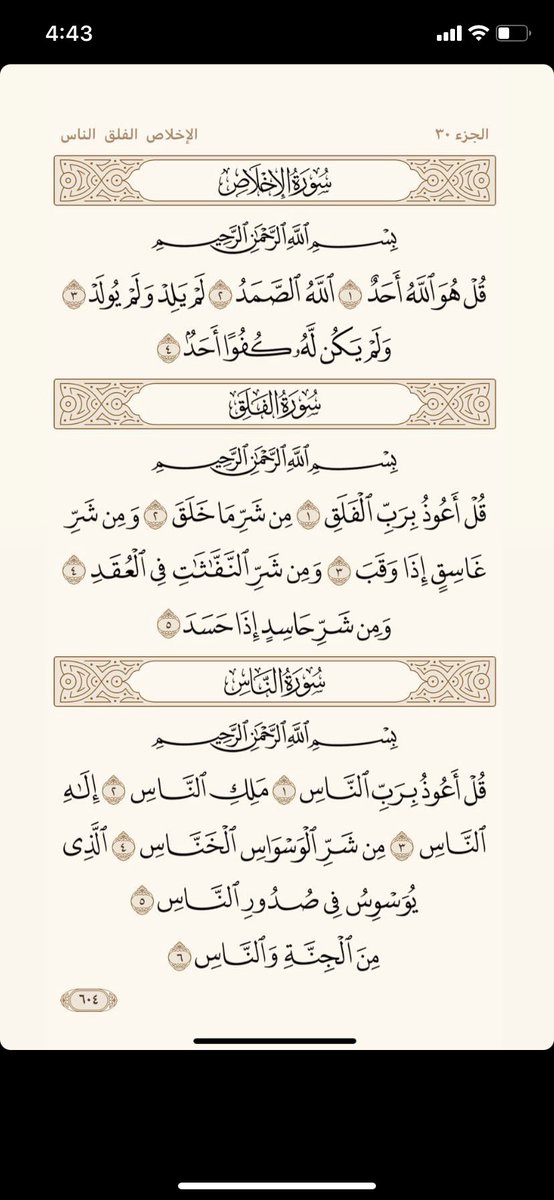 4:43
الجزء ٣٠
الإخلاص الفلق الناس
سُورَةُ الإِخْلَاصِ
بِسْمِ ٱللَّهِ ٱلرَّحْمَٰنِ ٱلرَّحِيمِ
قُلْ هُوَ ٱللَّهُ أَحَدٌ ١ ٱللَّهُ ٱلصَّمَدُ ٢ لَمْ يَلِدْ وَلَمْ يُولَدْ ٣
وَلَمْ يَكُن لَّهُۥ كُفُوًا أَحَدٌۢ ٤
سُورَةُ الفَلَقِ
بِسْمِ ٱللَّهِ ٱلرَّحْمَٰنِ ٱلرَّحِيمِ
قُلْ أَعُوذُ بِرَبِّ ٱلْفَلَقِ ١ مِن شَرِّ مَا خَلَقَ ٢ وَمِن شَرِّ
غَاسِقٍ إِذَا وَقَبَ ٣ وَمِن شَرِّ ٱلنَّفَّٰثَٰتِ فِى ٱلْعُقَدِ ٤
وَمِن شَرِّ حَاسِدٍ إِذَا حَسَدَ ٥
سُورَةُ النَّاسِ
بِسْمِ ٱللَّهِ ٱلرَّحْمَٰنِ ٱلرَّحِيمِ
قُلْ أَعُوذُ بِرَبِّ ٱلنَّاسِ ١ مَلِكِ ٱلنَّاسِ ٢ إِلَٰهِ
ٱلنَّاسِ ٣ مِن شَرِّ ٱلْوَسْوَاسِ ٱلْخَنَّاسِ ٤ ٱلَّذِى
يُوَسْوِسُ فِى صُدُورِ ٱلنَّاسِ ٥
مِنَ ٱلْجِنَّةِ وَٱلنَّاسِ ٦
٦٠٤